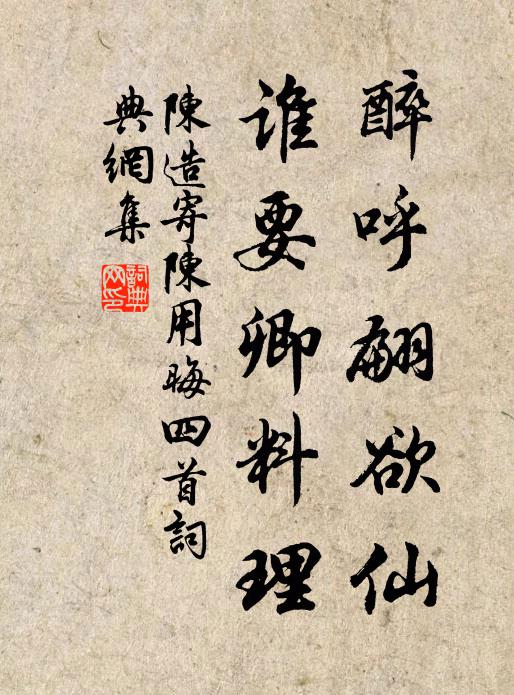 醉呼翩欲仙
谁要卿料理
陳造寄陳用晦四首詞
典網集
詞典網印